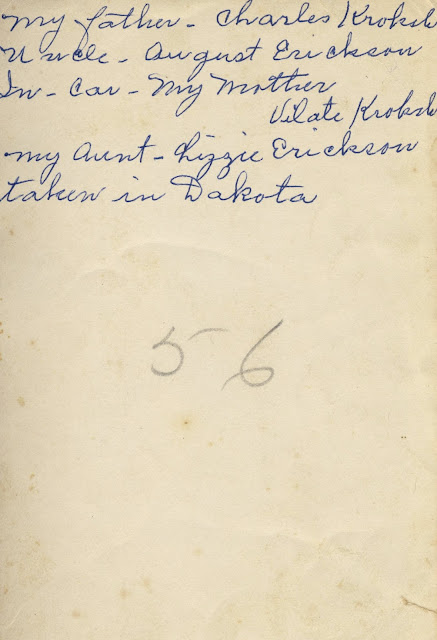 My father - Charles Kroksh
Uncle - August Erickson
In - Car - My Mother
Vilate Kroksh
My Aunt - Lizzie Erickson
taken in Dakota
56